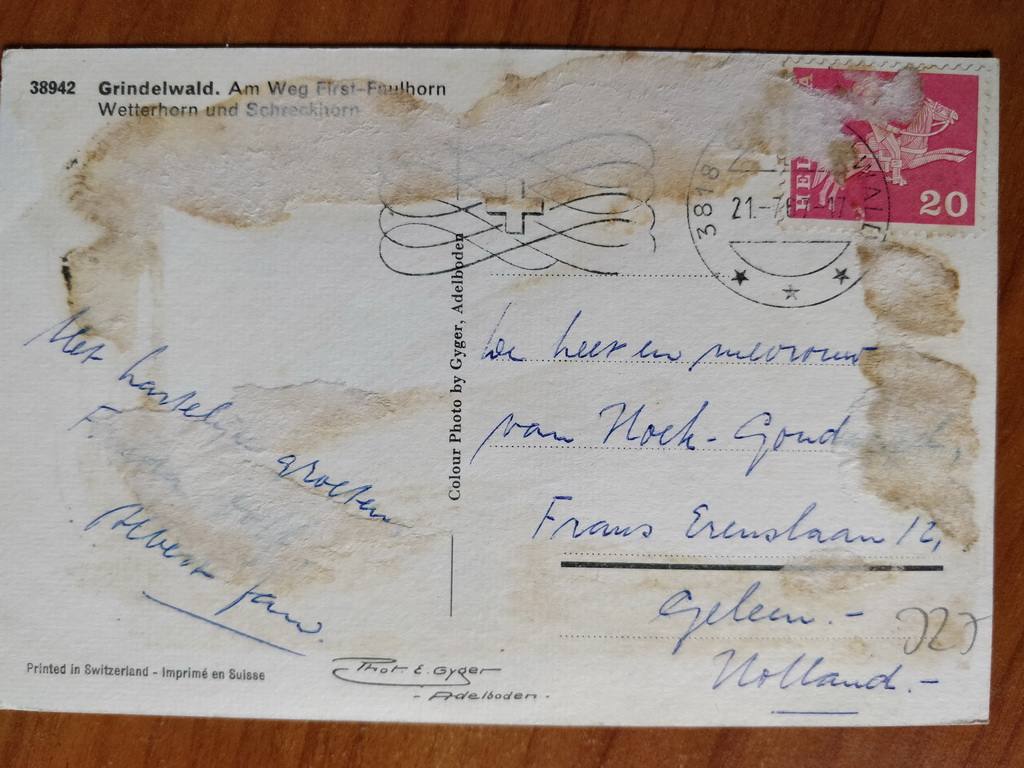 38942 Grindelwald. Am Weg First-Faulhorn
Wetterhorn und Schreckhorn
HEL
20
3818 WALD
21.-7.67-17
Met hartelijke groeten
F.
Albert
de heer en mevrouw
van Hoek - Goud
Frans Erenslaan 12,
Geleen.-
Holland.-
Colour Photo by Gyger, Adelboden
Printed in Switzerland - Imprimé en Suisse
Phot. E. Gyger
- Adelboden -